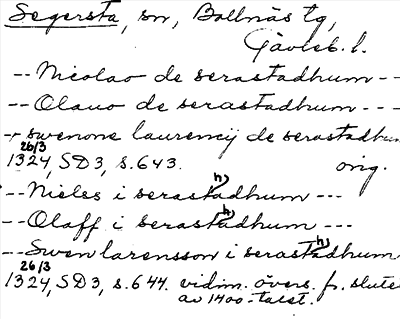 Segersta, sn, Bollnäs tg,
Gävleb. l.
-- Nicolao de serastadhum --
-- Olauo de serastadhum ---
-- swenone laurencij de serastadhum
26/3
1324, SD3, s. 643. orig.
h)
-- Nicles i serastadhum ---
h)
-- Olaff i serastadhum ---
h)
-- Swen larensson i serastadhum
26/3
1324, SD3, s. 644. vidim. övers. fr. slutet
av 1400-talet.